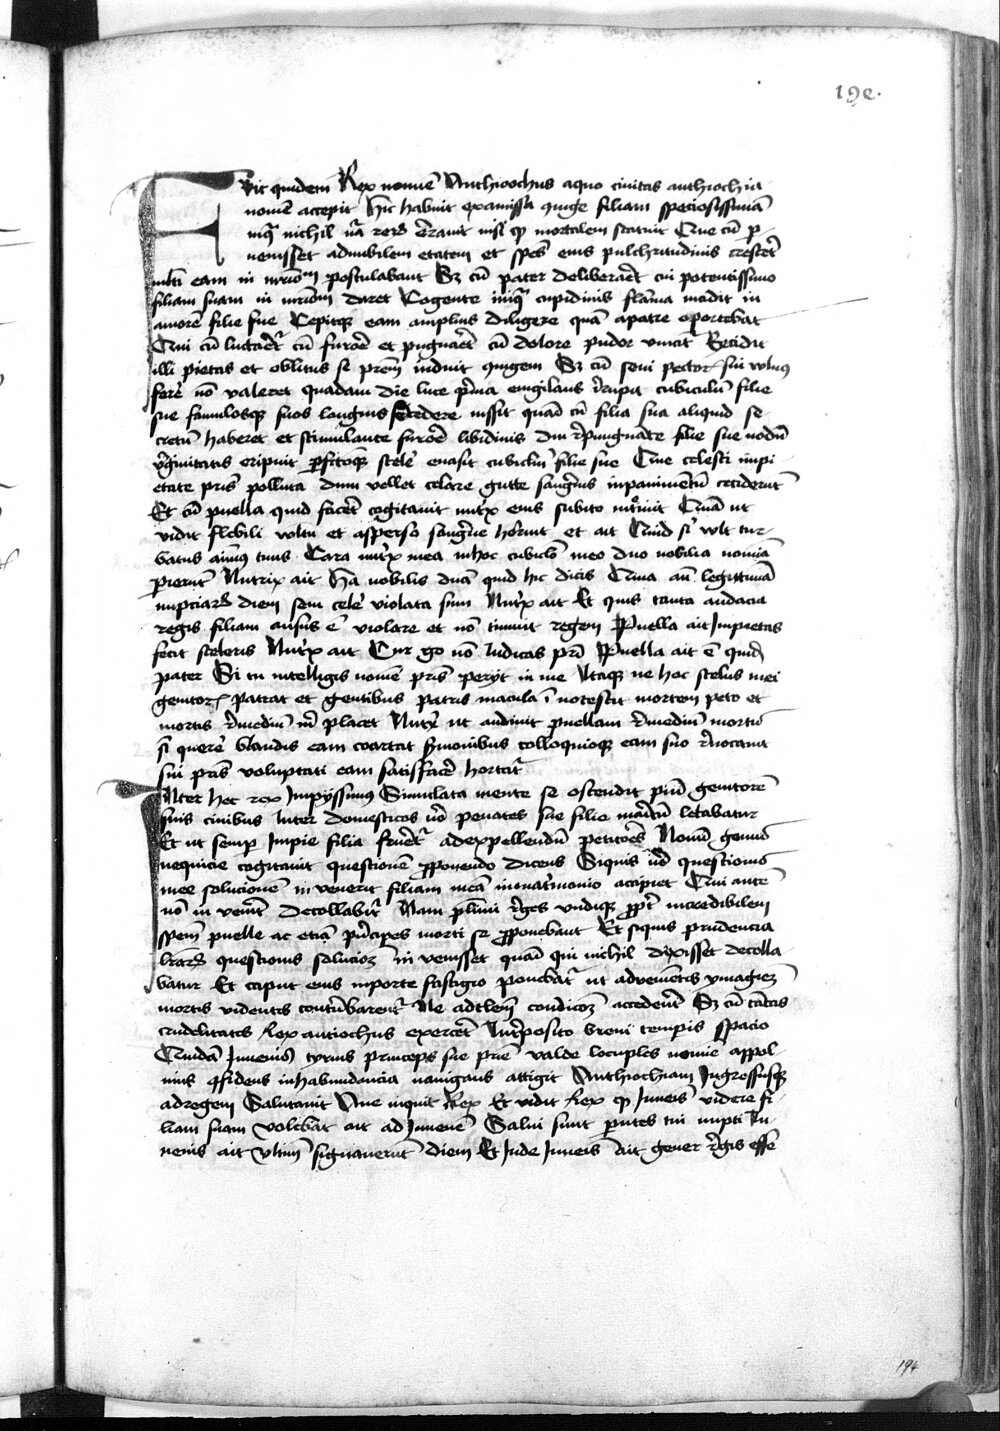 192.
Fuit quidem Rex nomīe Anthiochus aquo ciuitas anthiochia
nomē accepit Hic habuit examissa giuge filiam speciosissimā
inq̄ nichil nā rerꝫ errauit nisi ꝙ mortalem statuit Que cū p
uenisset adnubilem etatem et spēs eius pulchritudinis cresceret̄
multi eam in mr̄iōm postulabant Sꝫ cū pater deliberaret̄ cui potentissimo
filiam suam in mr̄iōm daret Cogente iniq̄ cupidinis flāma incidit in
amorē filie sue Cepitqꝫ eam amplius diligere quā apatre oportebat
Qui cū luctaret̄ cū furore et pugnaret̄ cū dolore pudor vincit Excidit
illi pietas et oblitus se prēm induit giugem Sꝫ cū seui pectoris sui vulnus
ferre nō valeret quadam die luce pͥma euigilans irrupit cubiculū filie
sue famulosqꝫ suos longius secedere iussit quasi cū filia sua aliquid se
cretū haberet et stimulante furore libidinis diu repugnante filie sue nodū
vͥginitatis eripuit perfectoqꝫ scele᷑ euasit cubiclm̄ filie sue Que celesti impi
etate pris̄ polluta dum vellet celare gutte sangͥnis inpauimentū ceciderūt
Et cū puella quid facet̄ cogitauit nutͥx eius subito intͦiuit Quā ut
vidit flebili voltu et asperso sangͥne horruit et ait Quid sͥ vult tur
batus aīmus tuus Cara nutͥx mea inhoc cubiclo meo duo nobilia nomīa
perierūt Nutrix ait Hā nobilis dnā quid hic dicis Quia an̄ legittimā
nupciarꝫ diem seui scele᷑ violata sum Nutͥx ait Et quis tanta audacia
regis filiam ausus ē violare et nō timuit regem Puella ait Impietas
fecit sceleris Nutͥx ait Cur gͦo nō Iudicas pr̄i Puella ait ē quidē
pater Si tu intelligis nomē pris̄ perijt in me Itaqꝫ ne hoc scelus mei
genitoris patrat et gentibus patris macula ī notescit mortem peto et
mortis remediū m̄ placet Nutͥx ut audiuit puellam remediū mortis
sͥ querē blandis eam coartat sermonibus colloquioqꝫ eam suo reuocauit
sui pris̄ voluptati eam satisfacere hortat̄
Inter hec rex Impyssimus Simulata mente se ostendit piū genitorē
suis ciuibus Inter domesticos vō penates sue filie maritū letabatur
Et ut semp Impie filia fruet̄ adexpellendū petitores Nouū genus
nequicie cogitauit questionē proponendo dicens Siquis vͦo questionis
mee solucionē in venerit filiam meā inmatͥmonio accipiet Qui autē
nō in venit̄ Decollabit̄ Nam plurimi reges vndiqꝫ proptͤr incredibilem
spem puelle ac etiā pͥncipes morti se proponebant Et siquis prudencia
literarꝫ questionis solucioꝫ in venisset quasi qui nichil dixisset decolla
batur Et caput eius inporte fastigio ponebat̄ ut aduenientes ymagiēꝫ
mortis videntes conturbarent̄ Ne adtlem̄ condicioꝫ accederent̄ Sꝫ cū tātas
crudelitates Rex antiochus exercet̄ Intͤrposito breui temporis spacio
Quidā Iuuenis tyrius princeps sue patrie valde locuples nomīe appol
nius confidens inhabundancia nauigans attigit Anthiochiam Ingressusqꝫ
adregem Salutauit Aue inquit Rex Et vidit Rex ꝙ Iuuenis videre fi
liam suam volebat ait ad Iuuenē Salui sunt parentes tui nupti Iu
uenis ait vltim̄ signauerūt diem Et Inde Iuuenis Ait gener regis essē
194